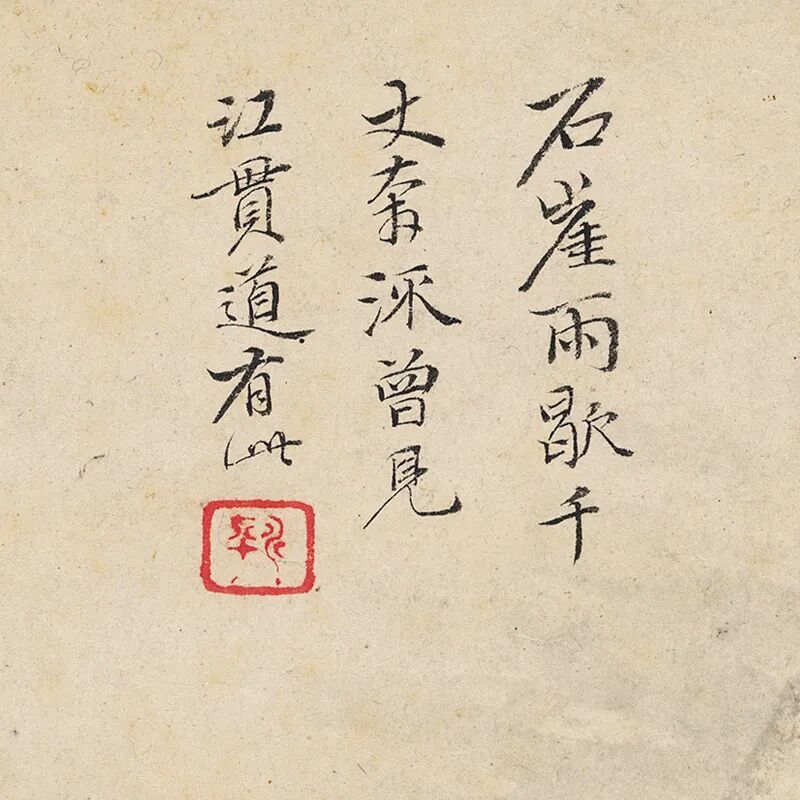 石崖雨歇千
丈奔流曾見
江貫道有此